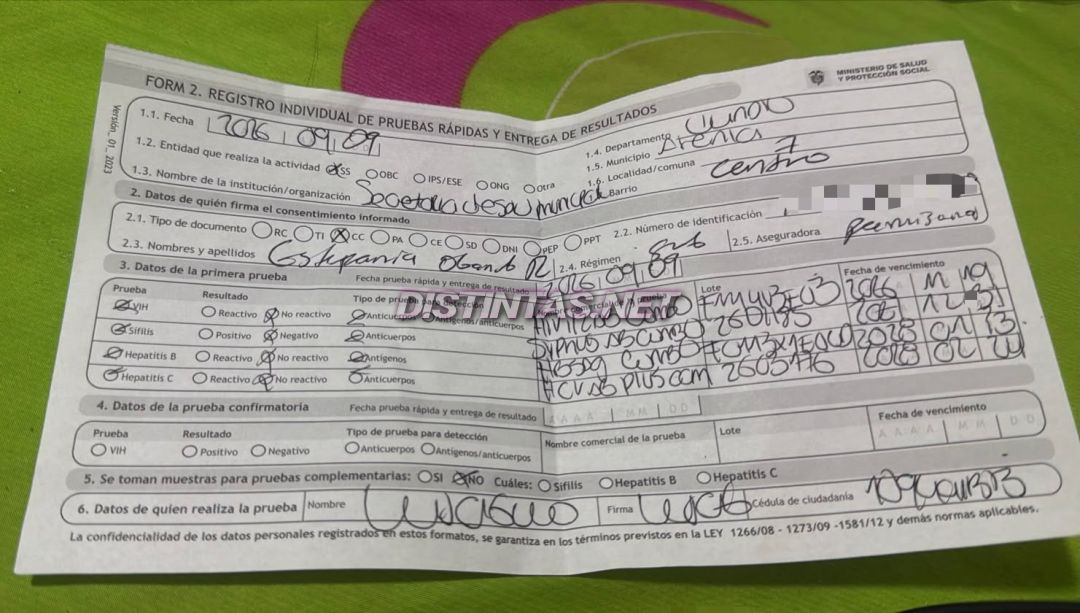 MINISTERIO DE SALUD
Y PROTECCIÓN SOCIAL
FORM 2. REGISTRO INDIVIDUAL DE PRUEBAS RÁPIDAS Y ENTREGA DE RESULTADOS
Versión_01_2023
1.1. Fecha 2026 09 09
1.4. Departamento
1.2. Entidad que realiza la actividad SS OBC IPS/ESE ONG Otra
1.5. Municipio
1.3. Nombre de la institución/organización
1.6. Localidad/comuna 7
Barrio centro
2. Datos de quién firma el consentimiento informado
2.1. Tipo de documento RC TI CC PA CE SD DNI PEP PPT 2.2. Número de identificación
2.3. Nombres y apellidos Estepania Obando 2.4. Régimen 2.5. Aseguradora
3. Datos de la primera prueba Fecha prueba rápida y entrega de resultado 2026 09 09
Prueba Resultado Tipo de prueba para detección Nombre comercial de la prueba Lote Fecha de vencimiento
VIH Reactivo No reactivo Anticuerpos Antígenos/anticuerpos 2026
Sífilis Positivo Negativo Anticuerpos
Hepatitis B Reactivo No reactivo Antígenos 2028
Hepatitis C Reactivo No reactivo Anticuerpos 2028 02
DISTINTAS.NET
4. Datos de la prueba confirmatoria Fecha prueba rápida y entrega de resultado A A A A M M D D
Prueba Resultado Tipo de prueba para detección Nombre comercial de la prueba Lote Fecha de vencimiento
VIH Positivo Negativo Anticuerpos Antígenos/anticuerpos A A A A M M D D
5. Se toman muestras para pruebas complementarias: SI NO Cuáles: Sífilis Hepatitis B Hepatitis C
6. Datos de quien realiza la prueba Nombre Firma Cédula de ciudadanía
La confidencialidad de los datos personales registrados en estos formatos, se garantiza en los términos previstos en la LEY 1266/08 - 1273/09 -1581/12 y demás normas aplicables.